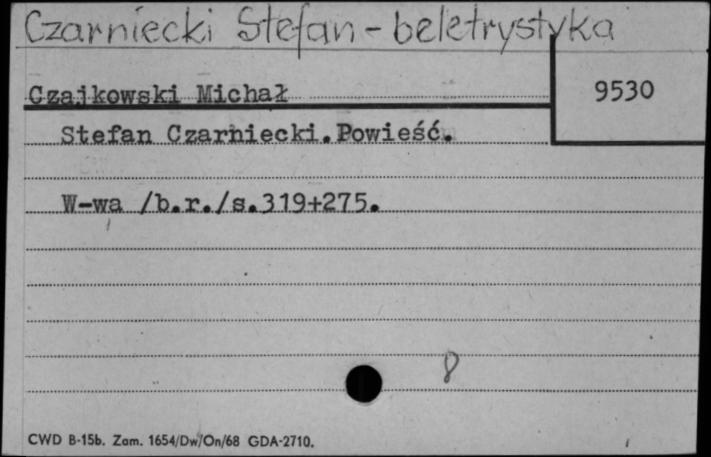 Czarniecki Stefan - beletrystyka
Czajkowski Michał
9530
Stefan Czarniecki.Powieść.
W-wa /b.r./s.319+275.
8
CWD B-15b. Zam. 1654/Dw/On/68 GDA-2710.